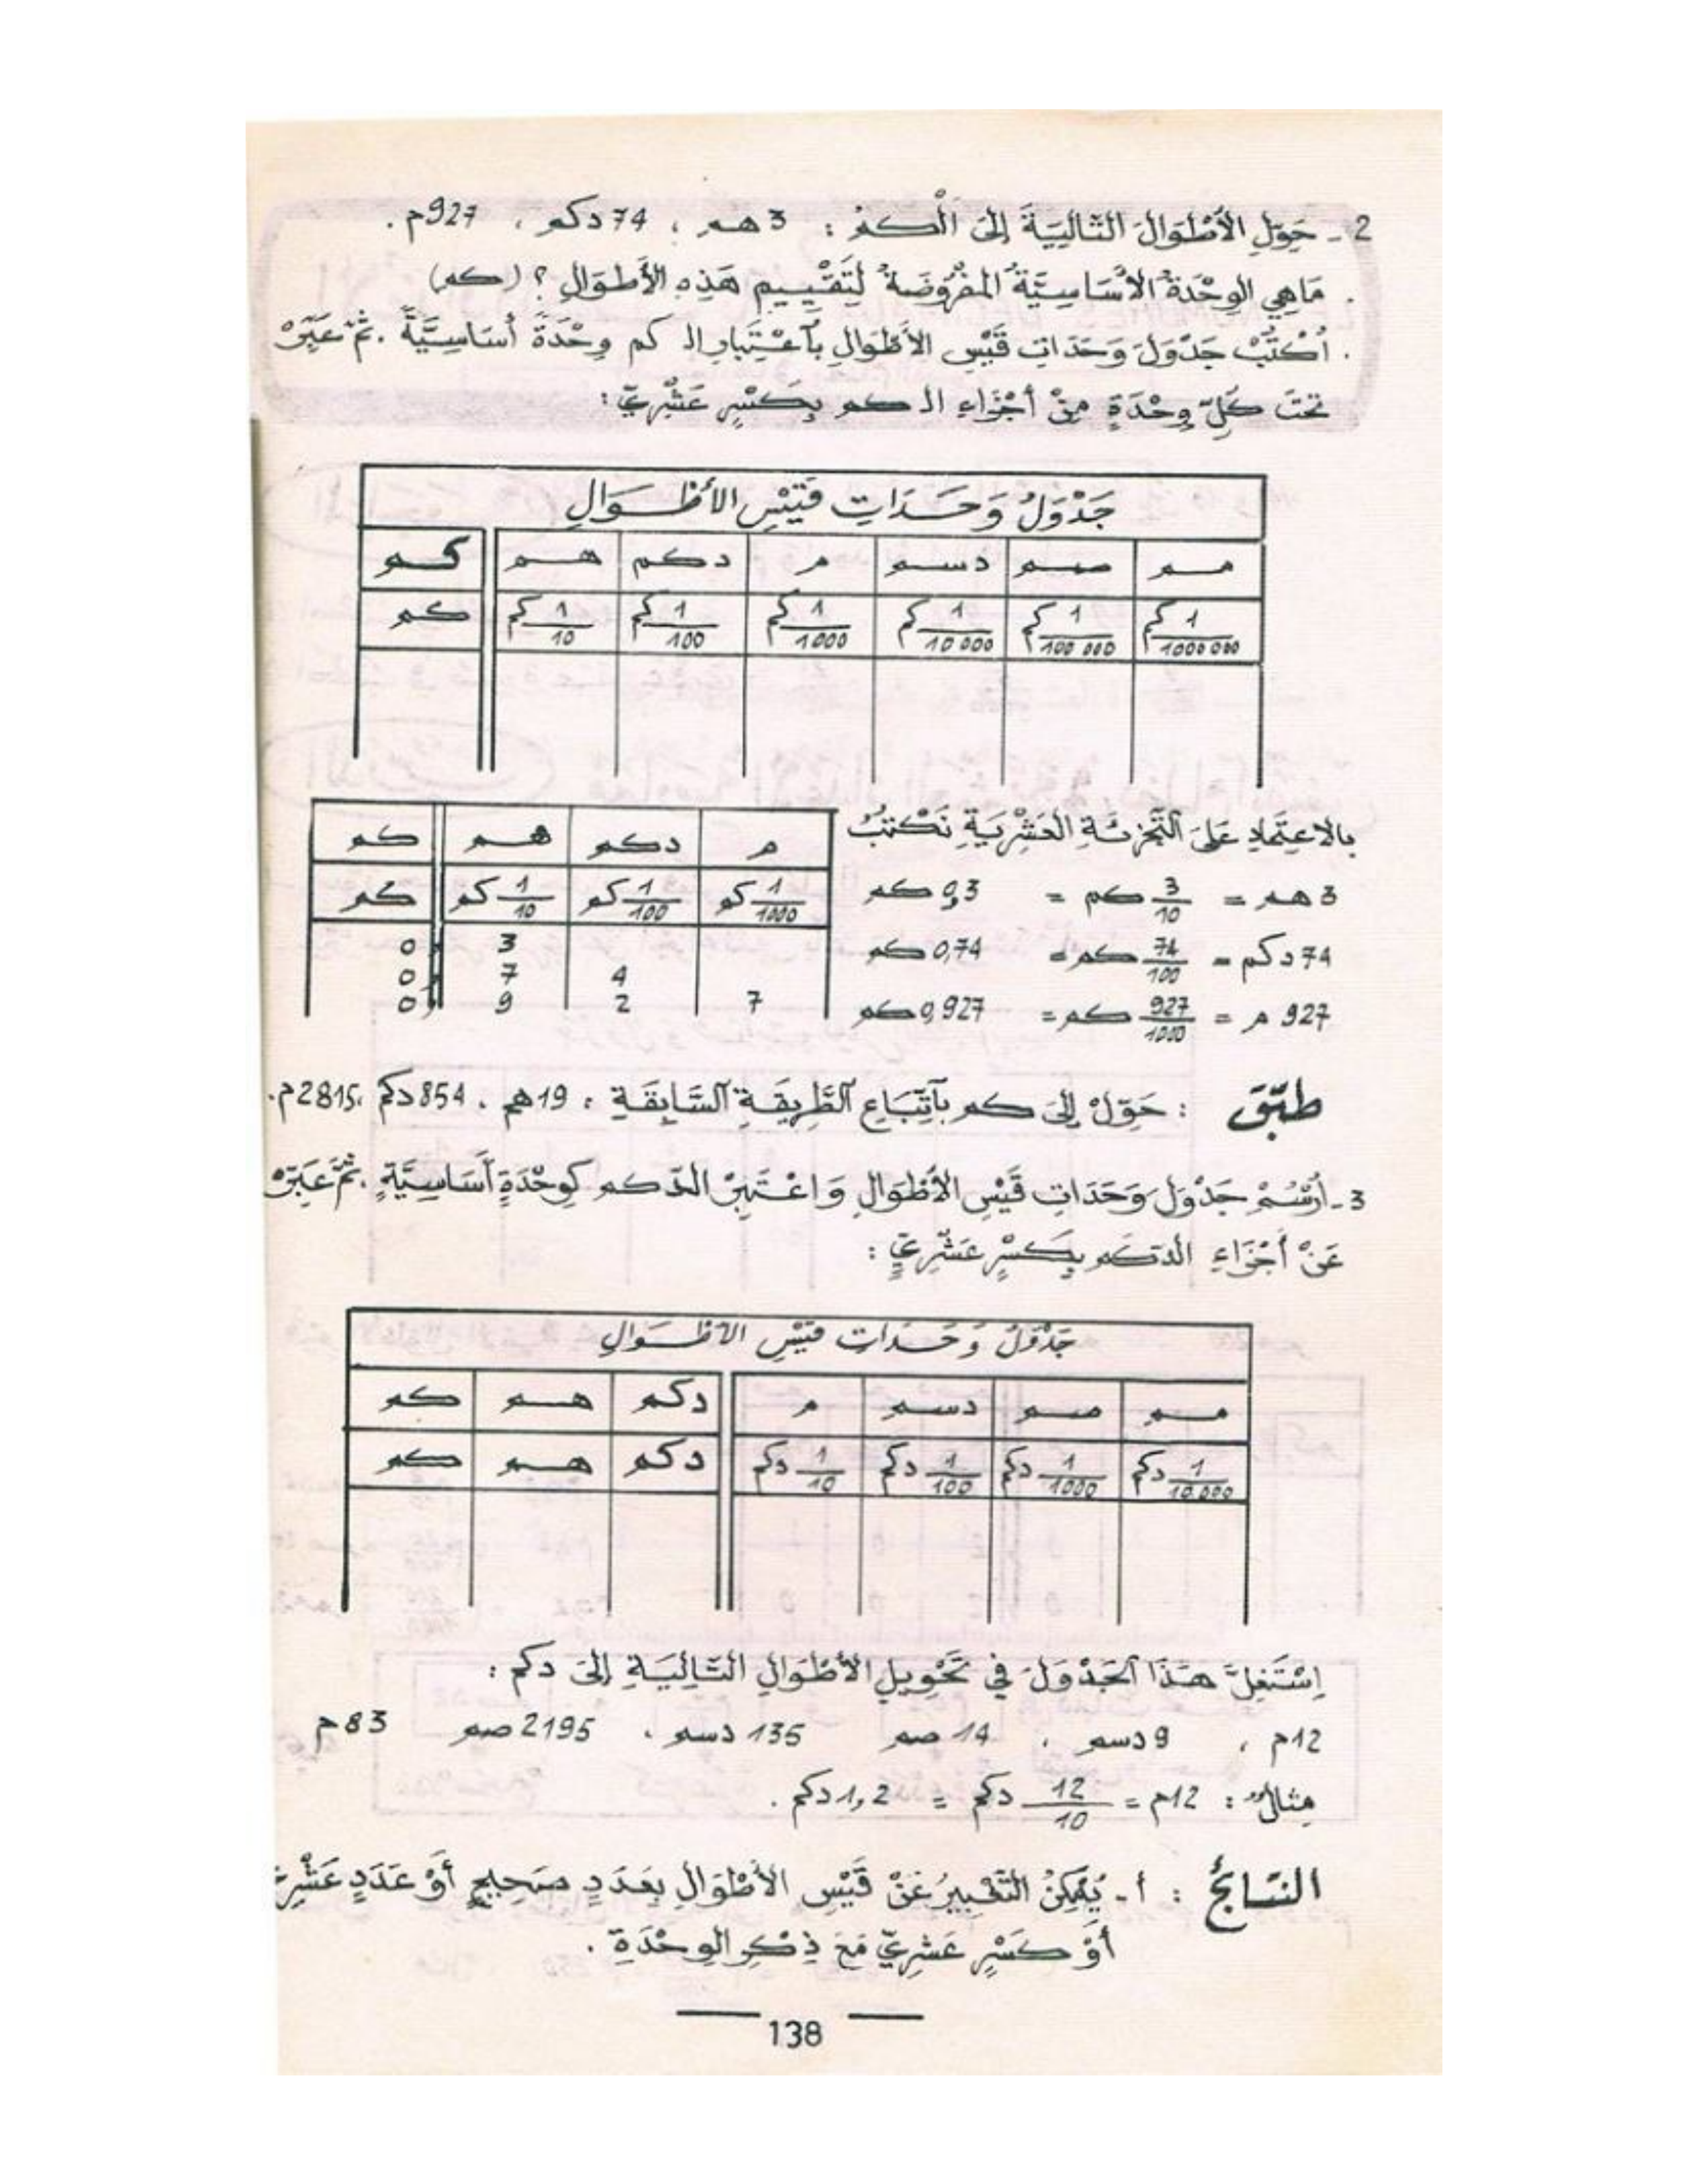 2 ـ حَوِّلِ الأَطْوَالَ التَّالِيَةَ إِلَى الْكمْ : 3 هم ، 74 دكم ، 927م .
. مَاهِي الوِحْدَةُ الأَسَاسِيَّةُ المَفْرُوضَةُ لِتَقْيِيمِ هَذِهِ الأَطْوَالِ ؟ (كم)
. اُكْتُبْ جَدْوَلَ وَحَدَاتِ قَيْسِ الأَطْوَالِ بِآعْتِبَارِ الـ كم وِحْدَةً أَسَاسِيَّةً . ثُمَّ عَبِّرْ
تَحْتَ كُلِّ وِحْدَةٍ مِنْ أَجْزَاءِ الـ كم بِكَسْرٍ عَشْرِيٍّ :
جَدْوَلُ وَحَدَاتِ قَيْسِ الأَطْوَالِ
كم هم دكم م دسم صم مم
كم 1/10 كم 1/100 كم 1/1000 كم 1/10 000 كم 1/100 000 كم 1/1000 000 كم
بِالاعْتِمَادِ عَلَى التَّجْزِئَةِ العَشْرِيَةِ نَكْتُبُ
3 هم = 3/10 كم = 0,3 كم
74 دكم = 74/100 كم = 0,74 كم
927 م = 927/1000 كم = 0,927 كم
كم هم دكم م
كم 1/10 كم 1/100 كم 1/1000 كم
0, 3
0, 7 4
0, 9 2 7
طَبِّقْ : حَوِّلْ إِلَى كم بِآتِّبَاعِ الطَّرِيقَةِ السَّابِقَةِ : 19هم ، 854 دكم ، 2815م.
3 ـ اُرْسُمْ جَدْوَلَ وَحَدَاتِ قَيْسِ الأَطْوَالِ وَاعْتَبِرْ الدّكم كَوِحْدَةٍ أَسَاسِيَّةٍ . ثُمَّ عَبِّرْ
عَنْ أَجْزَاءِ الدّكم بِكَسْرٍ عَشْرِيٍّ :
جَدْوَلُ وَحَدَاتِ قَيْسِ الأَطْوَالِ
كم هم دكم م دسم صم مم
كم هم دكم 1/10 دكم 1/100 دكم 1/1000 دكم 1/10.000 دكم
اِسْتَغِلَّ هَذَا الجَدْوَلَ فِي تَحْوِيلِ الأَطْوَالِ التَّالِيَةِ إِلَى دكم :
12م ، 9 دسم ، 14 صم 135 دسم ، 2195 صم 83 م
مِثَالٌ : 12م = 12/10 دكم = 1,2 دكم .
النتَائجُ : أ ـ يُمْكِنُ التَّعْبِيرُ عَنْ قَيْسِ الأَطْوَالِ بِعَدَدٍ صَحِيحٍ أَوْ عَدَدٍ عَشْرِيّ
أَوْ كَسْرٍ عَشْرِيّ مَعَ ذِكْرِ الوِحْدَةِ .
138